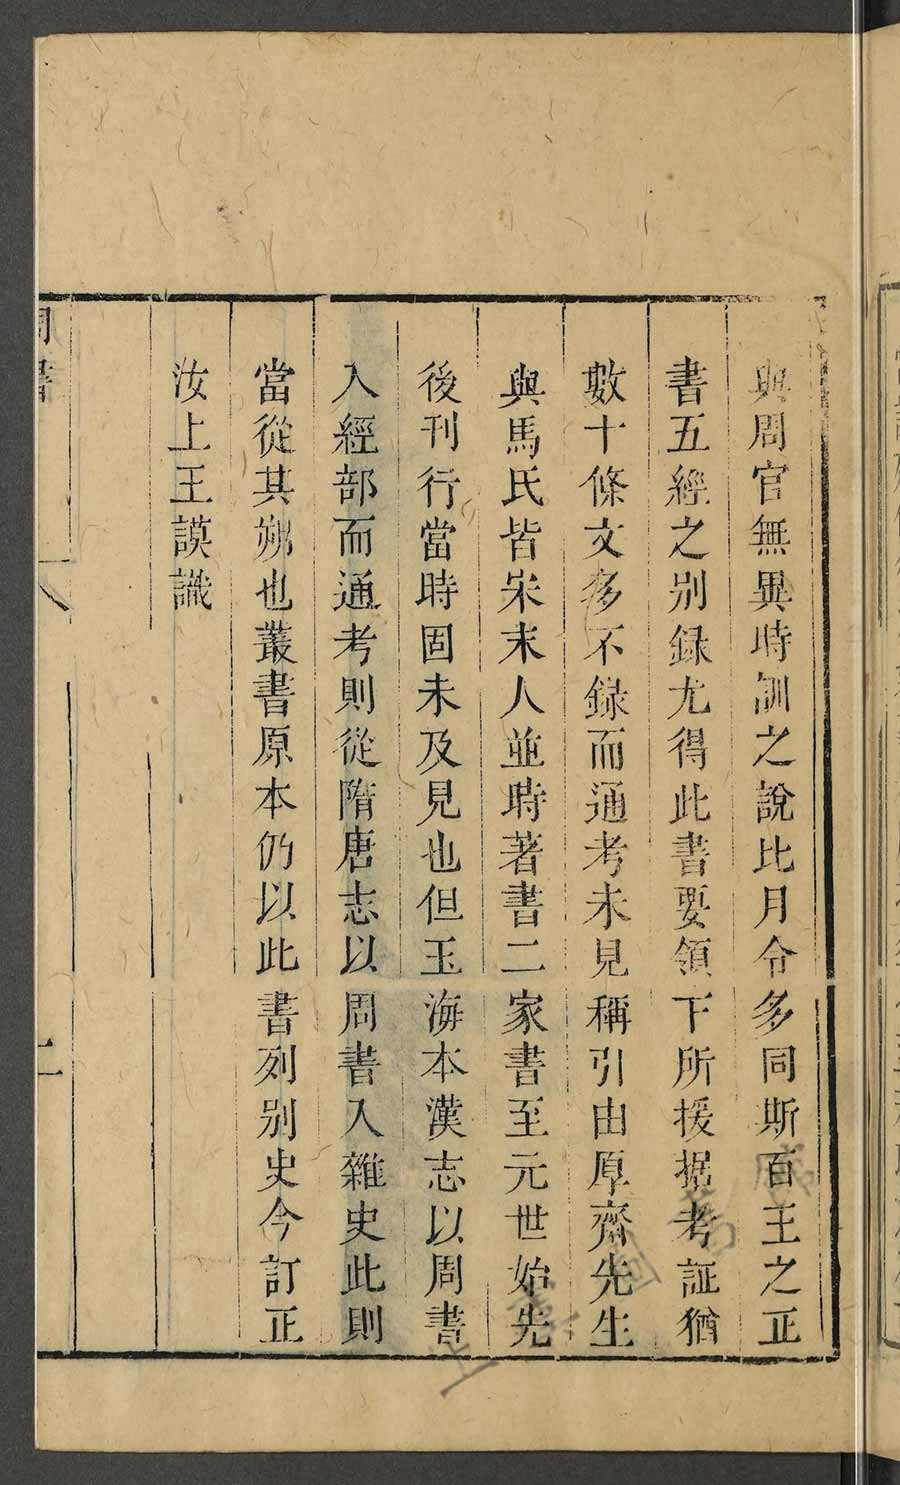 與周官無異時訓之說比月令多同斯百王之正
書五經之别録尤得此書要領下所援据考証猶
數十條文多不録而通考未見稱引由厚齋先生
與馬氏皆宋末人並時著書二家書至元世始先
後刊行當時固未及見也但玉海本漢志以周書
入經部而通考則從隋唐志以周書入雜史此則
當從其朔也叢書原本仍以此書列别史今訂正
汝上王謨識